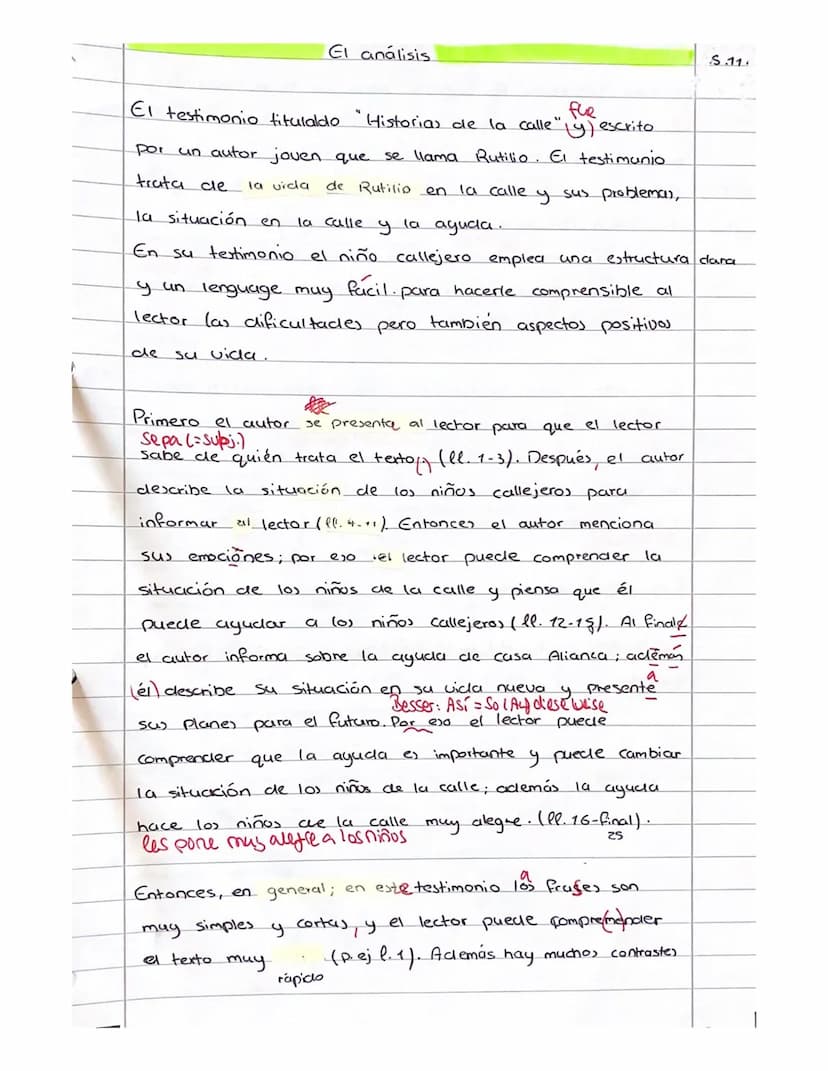 El análisis
S.11.
fue
El testimonio tituladdo "Historias de la calle" (y) escrito
por un autor joven que se llama Rutilio. El testimonio
trata de la vida de Rutilio en la calle y sus problemas,
la situación en la calle y la ayuda.
En su testimonio el niño callejero emplea una estructura clara
y un lenguage muy fácil para hacerle comprensible al
lector las dificultades pero también aspectos positivos
de su vida.
Primero el autor se presenta al lector para que el lector
sepa (=subj.)
sabe de quién trata el texto(,) (ll. 1-3). Después, el autor
describe la situación de los niños callejeros para
informar al lector (ll. 4-11). Entonces el autor menciona
sus emociones; por eso el lector puede comprender la
situación de los niños de la calle y piensa que él
puede ayudar a los niños callejeros (ll. 12-15). Al final
el autor informa sobre la ayuda de casa Alianca; además
a
(él) describe su situación en su vida nueva y presente
Besser: Así = So (Auf diese Weise
sus planes para el futuro. Por eso el lector puede
comprender que la ayuda es importante y puede cambiar
la situación de los niños de la calle; además la ayuda
hace los niños de la calle muy alegre. (ll. 16-final).
les pone muy alegre a los niños
25
a
Entonces, en general; en este testimonio los frases son
muy simples y cortas, y el lector puede compre(me)nder
el texto muy (p.ej l. 1). Además hay muchos contrastes
rápido